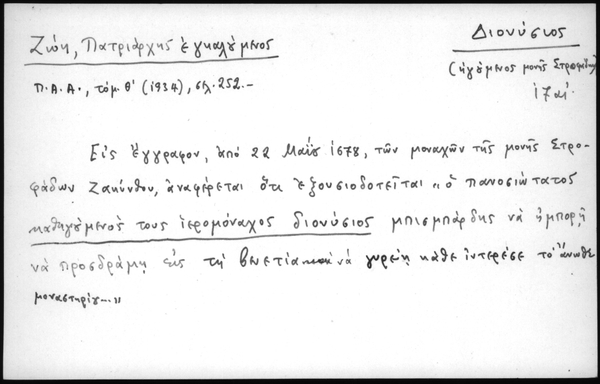 Διονύσιος
(ἡγούμενος μονῆς Στροφάδων)
17 αἰ.
Ζώη, Πατριάρχης ἐγκαλούμενος
Π.Α.Α., τόμ. θ' (1934), σελ. 252.-
Εἰς ἔγγραφον, ἀπό 22 Μαΐου 1678, τῶν μοναχῶν τῆς μονῆς Στρο-
φάδων Ζακύνθου, ἀναφέρεται ὅτι ἐξουσιοδοτεῖται «ὁ πανοσιώτατος
καθηγούμενός τους ἱερομόναχος διονύσιος μπισμπάρδης νὰ ἠμπορῇ
νὰ προσδράμῃ εἰς τὴ βενετία καὶ νά γυρεύῃ κάθε ἰντερέσε τοῦ ἄνωθε
μοναστηρίου...»